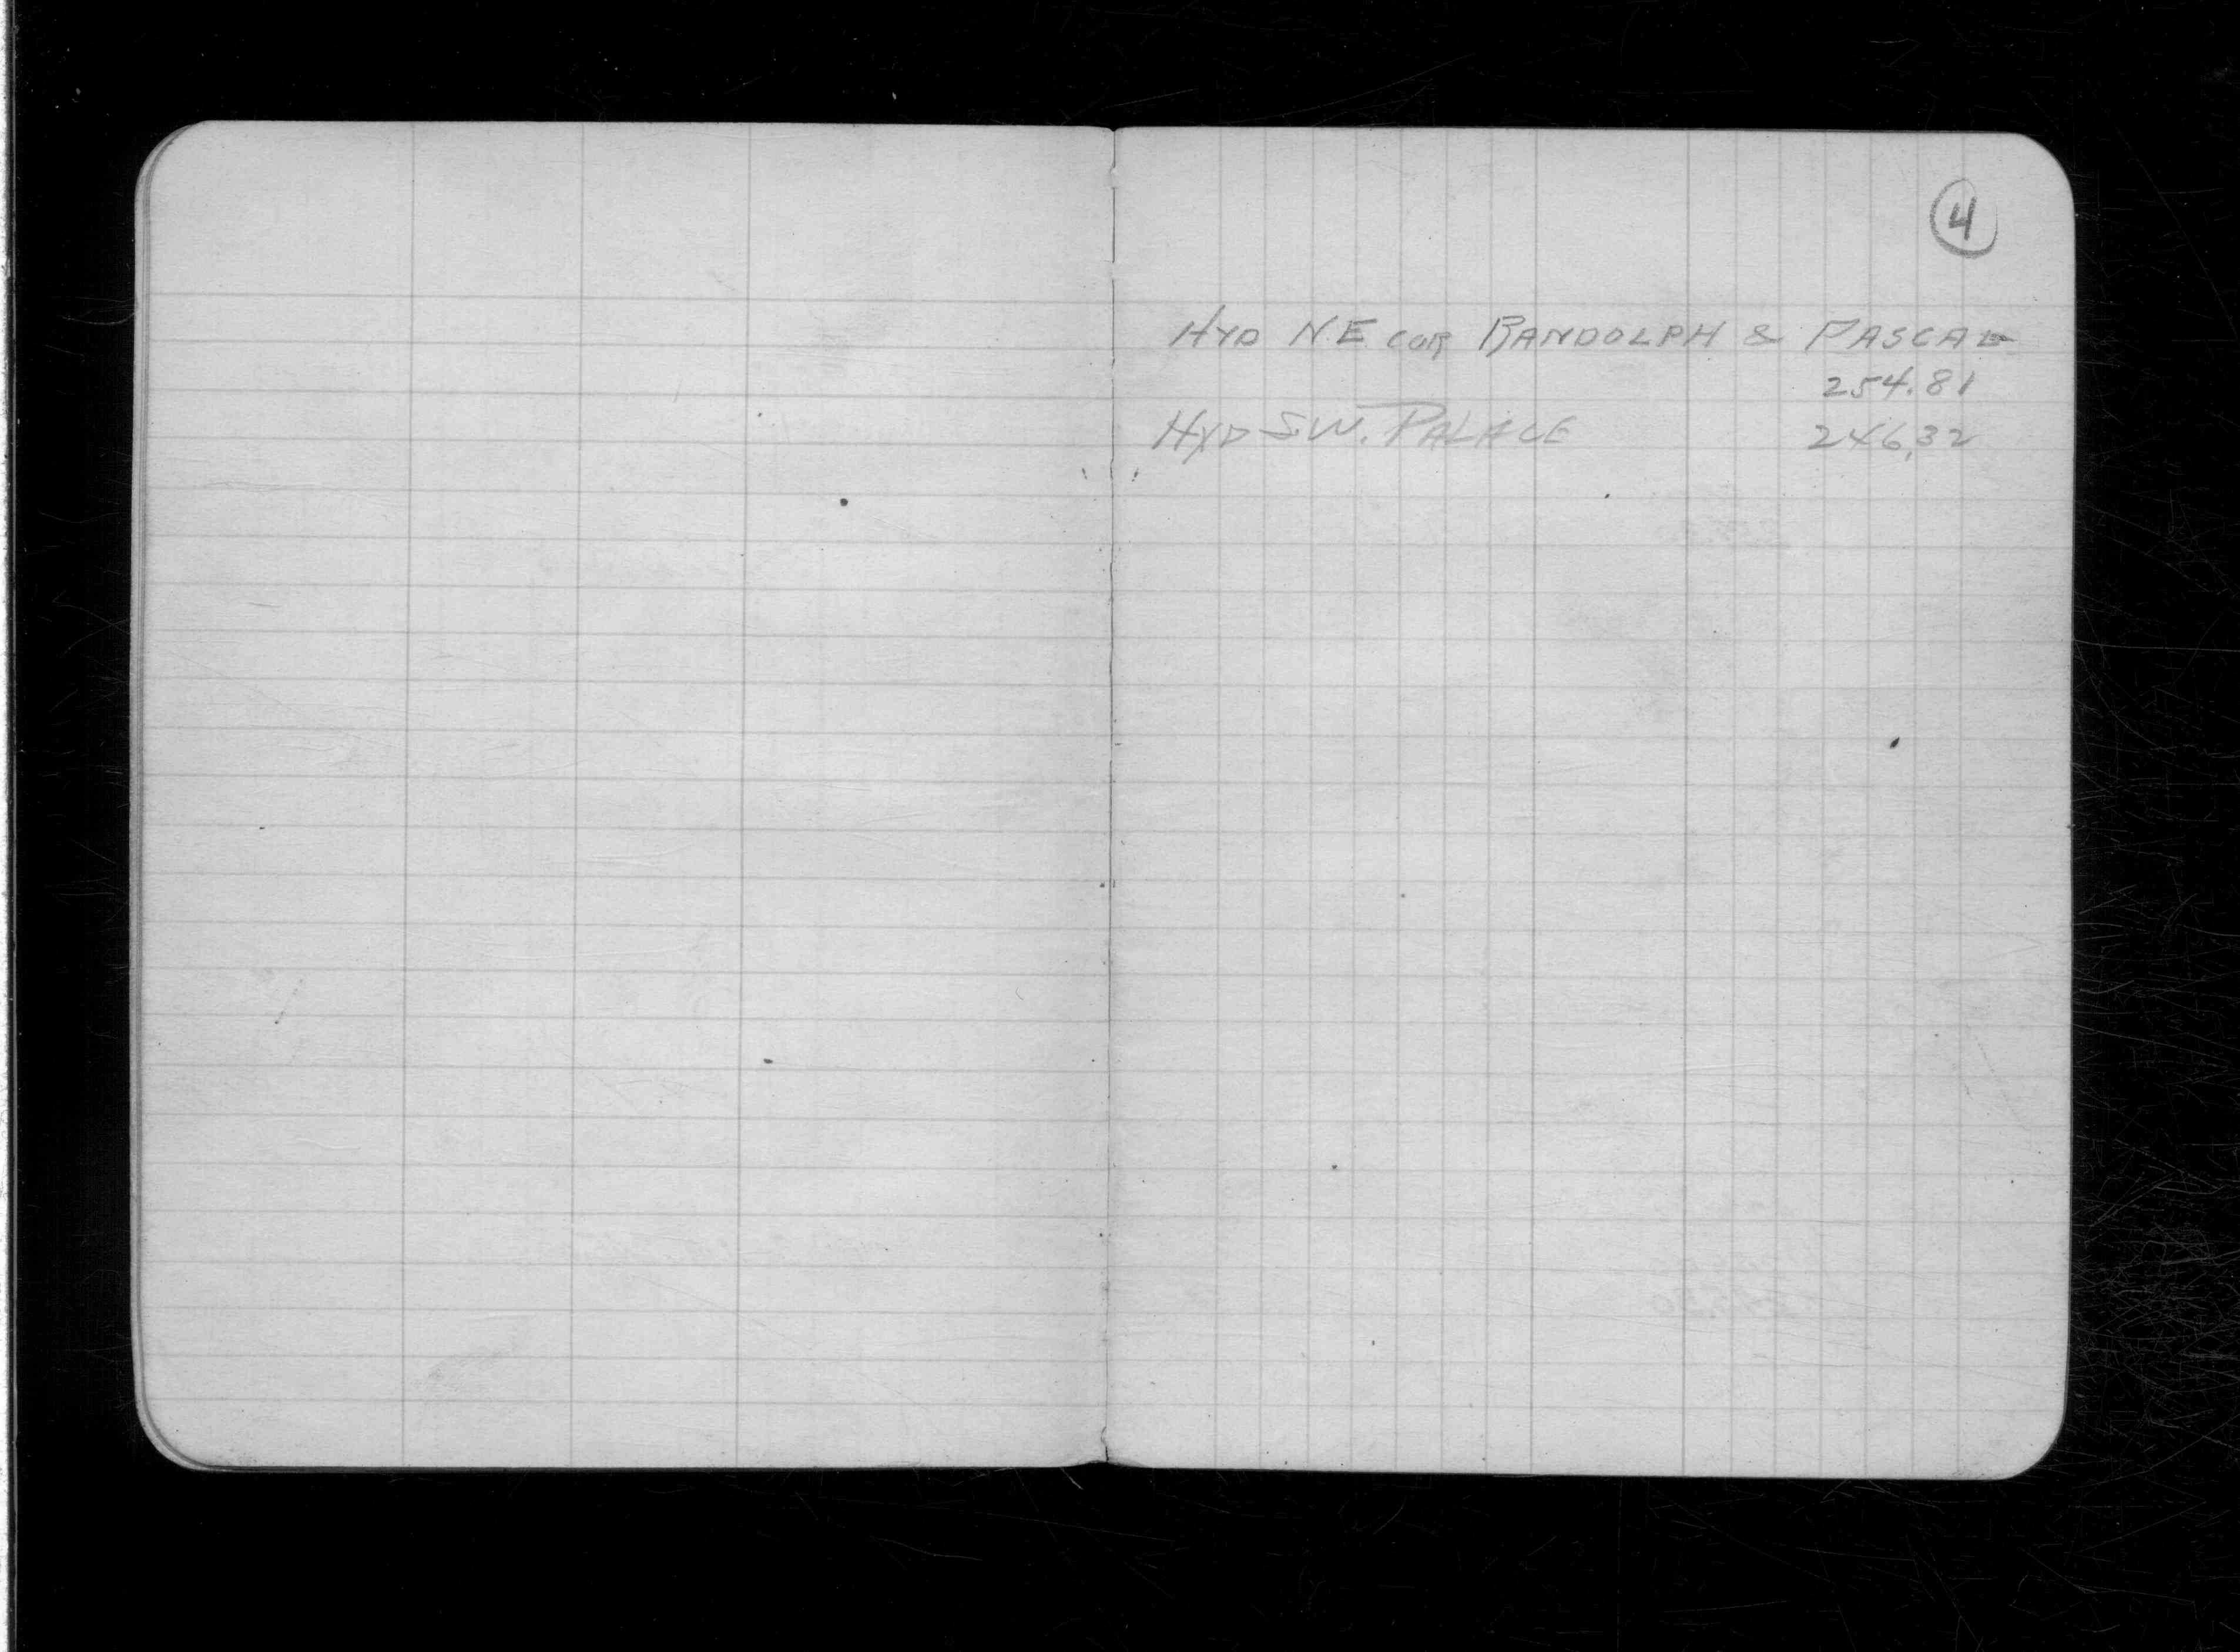 4
HYD N.E. COR RANDOLPH & PASCAL
254.81
HYD S.W. PALACE 246.32